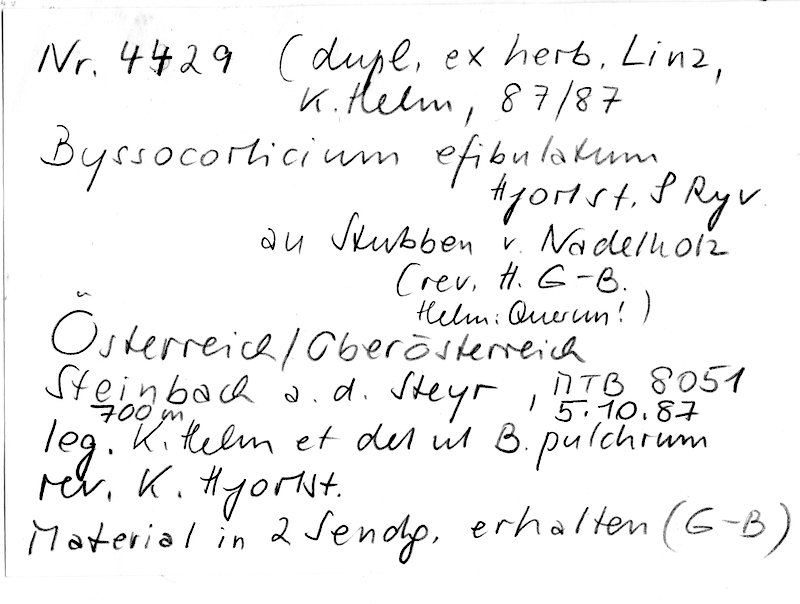 Nr. 4429 (dupl. ex herb. Linz,
K. Helm, 87/87
Byssocorticium efibulatum
Hjortst. & Ryv.
an Stubben v. Nadelholz
(rev. H. G-B.
Helm: Quercus!)
Österreich/Oberösterreich
Steinbach a. d. Steyr, MTB 8051
700 m 5.10.87
leg. K. Helm et det ut B. pulchrum
rev. K. Hjortst.
Material in 2 Sendg. erhalten (G-B)